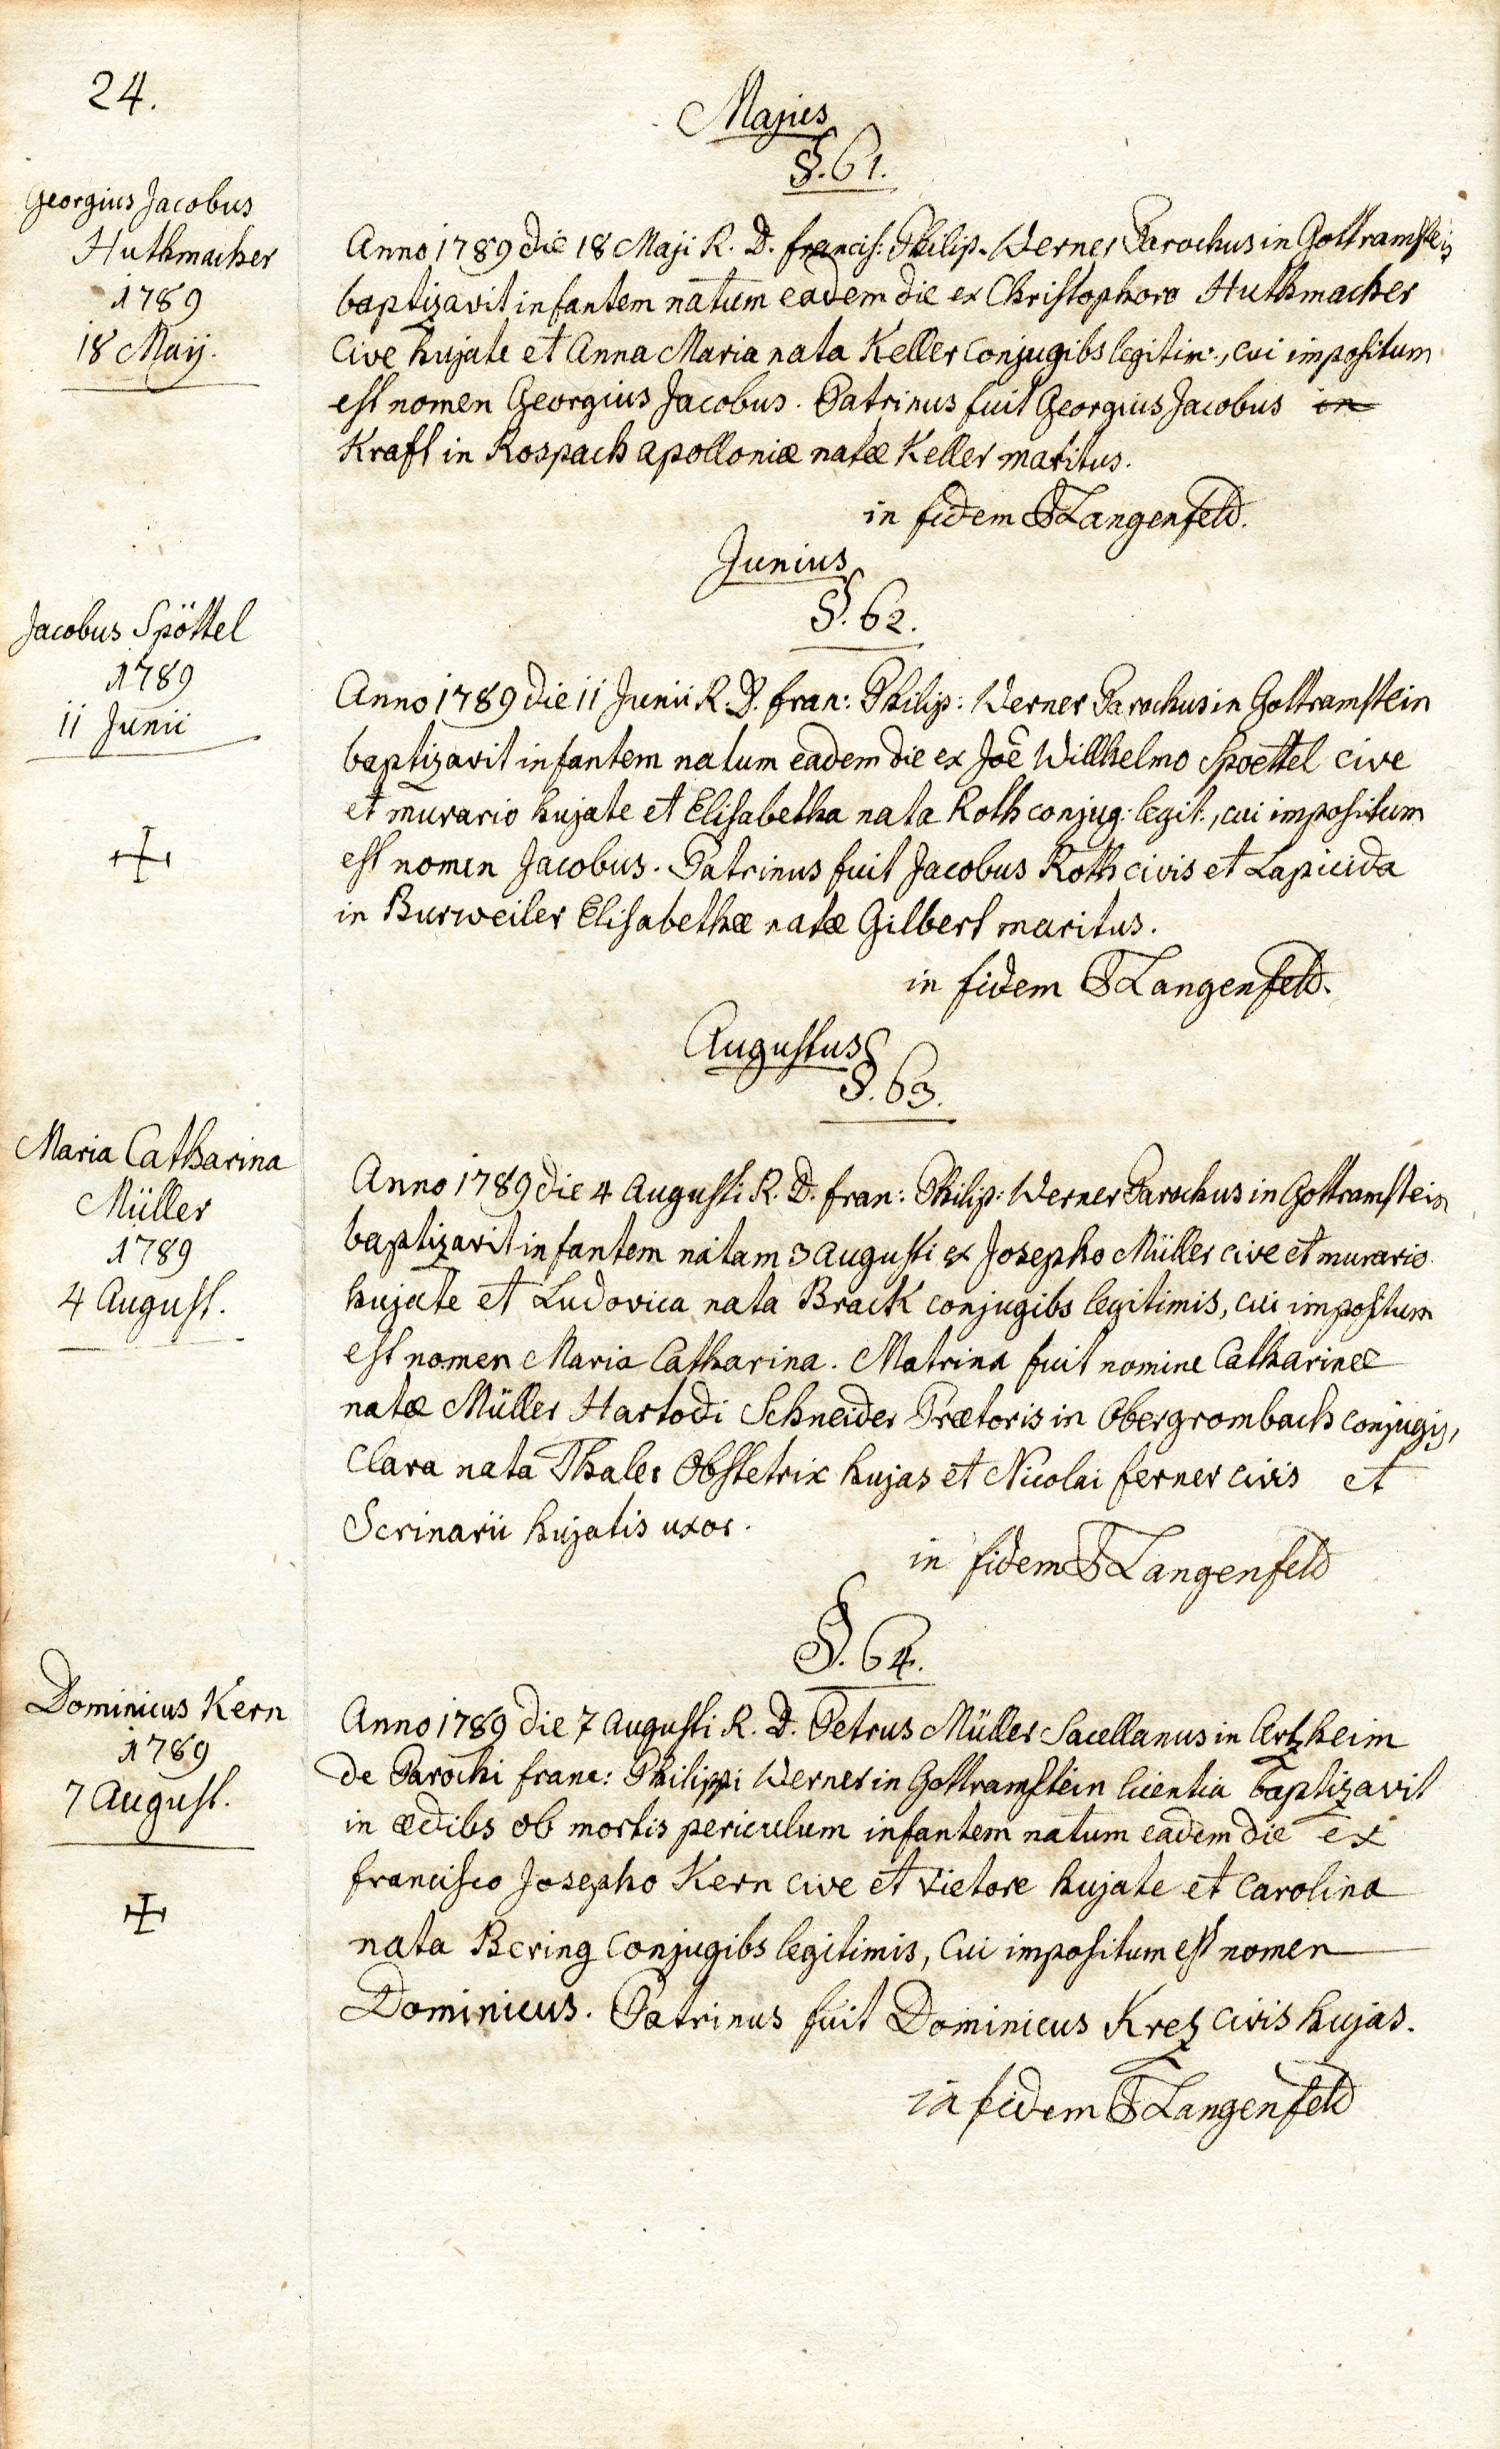 24.
Majus
§. 61.
Georgius Jacobus
Huthmacher
1789
18 Maij.
Anno 1789 die 18 Maji R. D. francis: Philip. Werner Parochus in Gottramstein
baptizavit infantem natum eadem die ex Christophoro Huthmacher
Cive hujate et Anna Maria nata Keller conjugibs legitim:, cui impositum
est nomen Georgius Jacobus. Patrinus fuit Georgius Jacobus in
Kraft in Rospach apolloniæ natæ Keller maritus.
in fidem Langenfeld.
Junius
§. 62.
Jacobus Spöttel
1789
11 Junii
Anno 1789 die 11 Junii R. D. fran: Philip: Werner Parochus in Gottramstein
baptizavit infantem natum eadem die ex Joê Willhelmo Spoettel cive
et murario hujate et Elisabetha nata Roth conjug: legit:, cui impositum
est nomen Jacobus. Patrinus fuit Jacobus Roth civis et Lapicida
in Burweiler Elisabethæ natæ Gilbert maritus.
in fidem Langenfeld.
Augustus
§. 63.
Maria Catharina
Müller
1789
4 August.
Anno 1789 die 4 Augusti R. D. fran: Philip: Werner Parochus in Gottramstein
baptizavit infantem natam 3 augusti ex Josepho Müller cive et murario
hujate et Ludovica nata Brack conjugibs legitimis, cui impositum
est nomen Maria Catharina. Matrina fuit nomine Catharinæ
natæ Müller Hartodi Schneider Prætoris in Obergrombach conjugis,
Clara nata Thaler Obstetrix hujas et Nicolai ferner civis et
Scrinarii hujatis uxor.
in fidem Langenfeld
§. 64.
Dominicus Kern
1789
7 August.
Anno 1789 die 7 augusti R. D. Petrus Müller Sacellanus in Artzheim
de Parochi franc: Philippi Werner in Gottramstein licentia baptizavit
in ædibs ob mortis periculum infantem natum eadem die ex
francisco Josepho Kern cive et vietore hujate et Carolina
nata Bering conjugibs legitimis, Cui impositum est nomen
Dominicus. Patrinus fuit Dominicus Kretz civis hujas.
in fidem Langenfeld